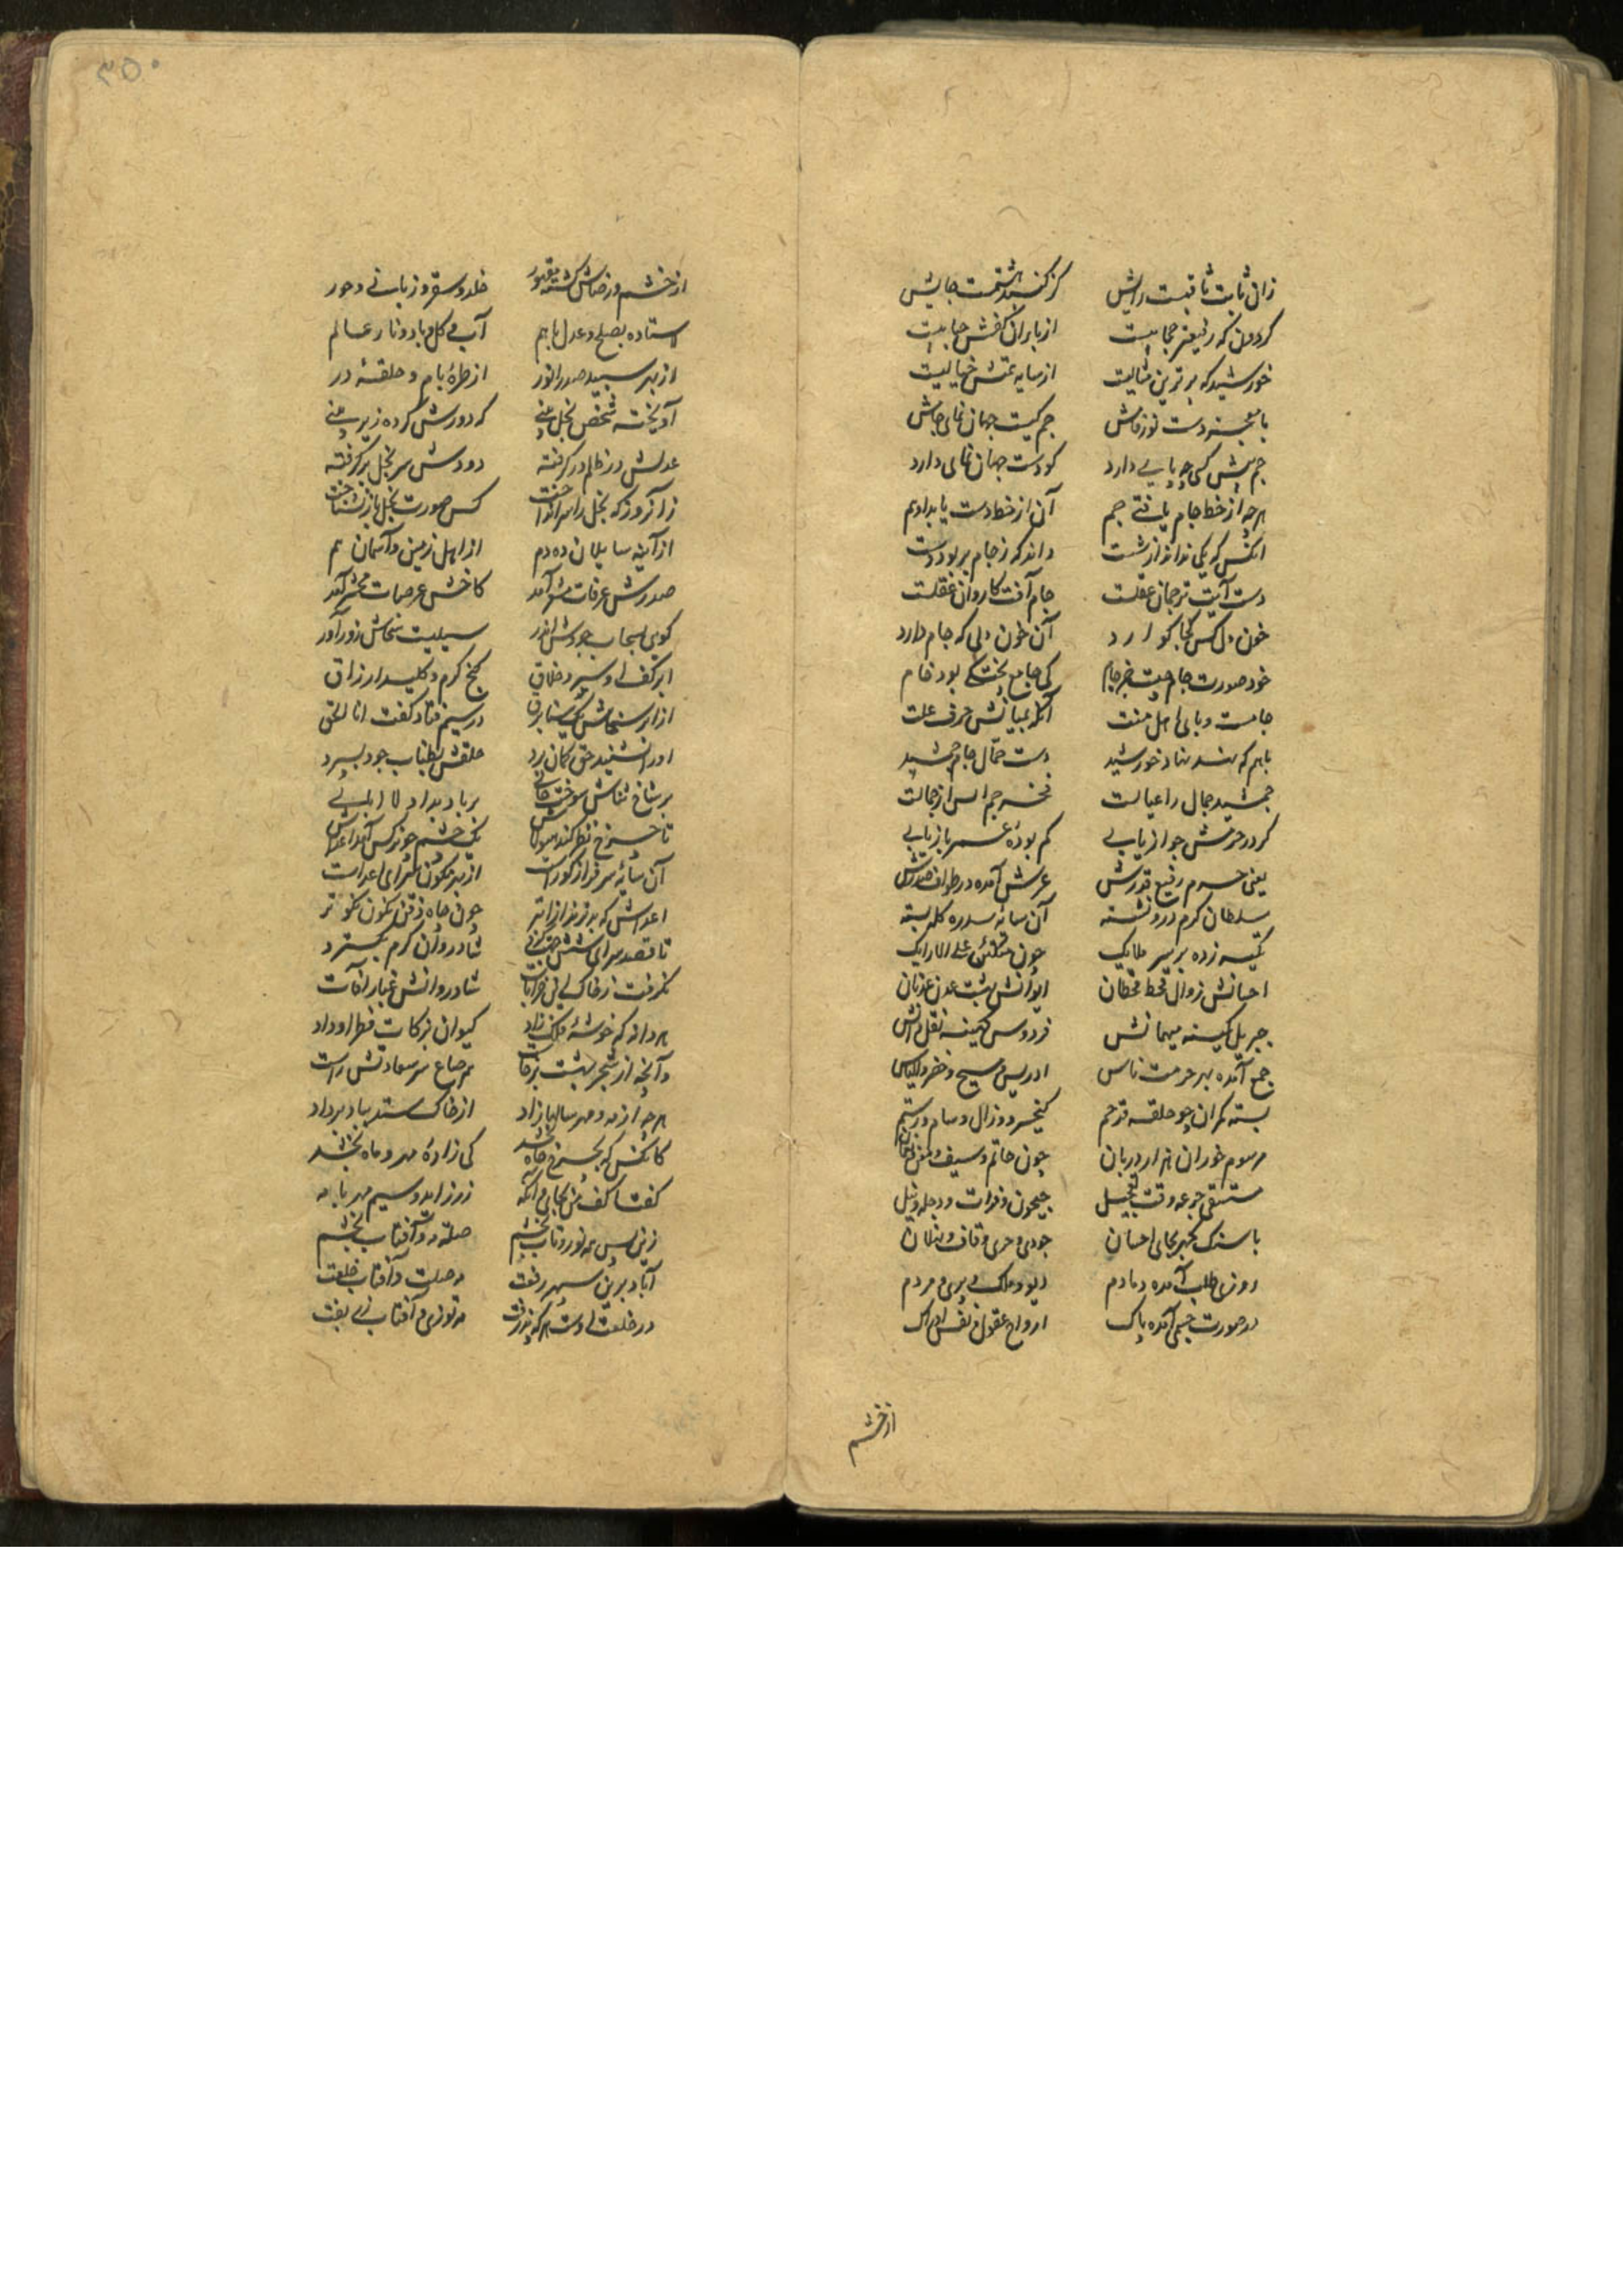 زان ثابت ثاقبست رایش کز گنبد هشتمست جایش
گردون که رفیعتر حجابیست از باران کفش حبابیست
خورشید که برترین مثالیست از سایه خیالیست
با معجزه دست نوربخش جم کیست جهان نمای جامش
جم پیش کسی چه پای دارد کو دست جهان نمای دارد
هرچه از خط جام یافتی جم آن از خط دست یابد او هم
آنکس که یکی نداند از شست داند که ز جام به بود دست
دست آیت ترجمان عقلست جام آفت کاروان عقلست
خون دل کس کجا گوارد آن خون دلی که جام دارد
خود صورت جام چیست جز جام کی جامع پختگی بود خام
جامست وبای اهل منت آنکه بمیانش حرف علت
باهم که نهد نهاد خورشید دست حمال جام جمشید
جمشید جمال را عیالست فخر جم اس از جمالست
گر در حرمش جواز یابی گم بوده عمر باز یابی
یعنی حرم رفیع قدرش عرش آمده در طواف صدرش
سلطان کرم درو نشسته آن سایه سدره کله بسته
تکیه زده بر سریر ملایک چون متکئین علی الارایک
احسانش زوال قحط قحطان ایوانش بهشت عدن عدنان
جبریل کمینه میهمانش فردوس کمینه نقل خوانش
جمع آمده بهر حرمت ناس ادریس و مسیح و خضر و الیاس
بسته کمران چو حلقه در هم کیخسرو و زال و سام و رستم
مرسوم خوران هزار دربان چون حاتم و سیف و معن و نعمان
مستسقی جرعه وقت تعجیل جیحون و فرات و دجله و نیل
با سنگ گهر بجای احسان جودی و حری و قاف و ثهلان
روزی طلب آمده دمادم دیو و ملک و پری و مردم
در صورت جسم آمده پاک ارواح و عقول و نفس و ادراک
از خشم
۳۵۰
از خشم و رضاش گشته مقهور خلد و سقر و زبانی و حور
استاده بصلح و عدل باهم آب و گل و باد و نار عالم
از بهر سپید صدر انور از طره بام و حلقه در
آویخته شخص بخل که دورش کرده زیر پی
عدلش در ظلم در گرفته دودش سر بخل برگرفته
زآنروز که بخل را سر انداخت کس صورت بخل باز نشناخت
از آینه سلیمان ده دم از اهل زمین و آسمان هم
صدرش عرفات مشعر آمد کاخش عرصات محشر آمد
گویی سحاب جودش اندر سیلیست سخاش زورآور
ابر کف او سپرد خلاق گنج کرم و کلید ارزاق
از ابر سخاش یک سنا برق در سیم فتاد گفت انا الحق
او را نشنید حق گمان برد حلقش بطناب جود بسپرد
بر شاخ ثناش سوخت بر باد بداد لا
تا چرخ نظر کند یک چشم چو نرگس آمد اعداش
آن سایه سرفراز کوراست از بهر نگون سرای اعداست
اعداش که بدتر از بتر چون چاه ذقن نگون نکوتر
تا قصد سرای شش شادروان کرم بگسترد
نگرفت ز خاک این خرابات شادروانش غبار آفات
هر دانه که خوشه فلک زاد کیوان بزکات فطر او داد
وآنچه از شجر بهشت برخاست هم صاع سر سعادتش راست
هرچه از مه و مهر سالها زاد از خاک ستد بباد برداد
کآنکس که بچرخ جاه بخشد کی زاده مهر و ماه بخشد
گفتا کف من بجای آنکه زر زاید و سیم مهر با مه
زین پس همه نور و تاب بخشم صلت مه و آفتاب بخشم
آباد برین سپهر رفعت مه صلت و آفتاب خلعت
در خلعت او دست هر که پذرفت مه توزی و آفتاب زربفت